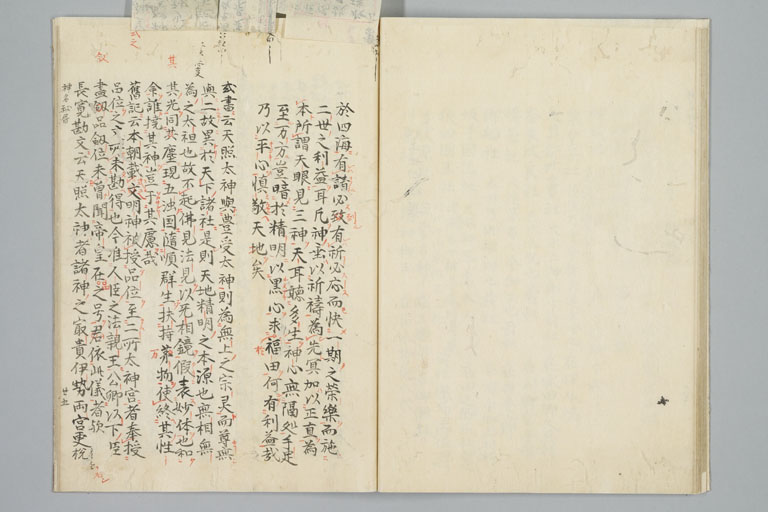 於四海有諸必致有祈必应而快一期之榮樂而施
二世之利益耳凡神垂以祈禱為先冥加以正直為
本所謂天眼見三神天耳聽多生神心無隔処手足
至万方豈暗於精明以黒心求福田何有利益哉
乃以平心慎敬天地矣
或書云天照太神與豊受太神則為無上之宗灵而尊無
與二故異於天下諸社是則天地精明之本源也無相無
為之太祖也故不起佛見法見以无相鏡假表妙体也和
其光同其塵現五浊国随順群生扶持萬物使終其性
余誰授其神豈于其慮哉
舊記云本朝載文明神被授品位至二所太神宮者奉授
品位之字未勘得也今准人臣之法親王公卿以下臣
盡釼品釼位未曽聞帝皇在之号君依此儀者欤
長寛勘文云天照太神者諸神之㝡貴伊勢両宮更
神名秘書
其
万
於
廿五